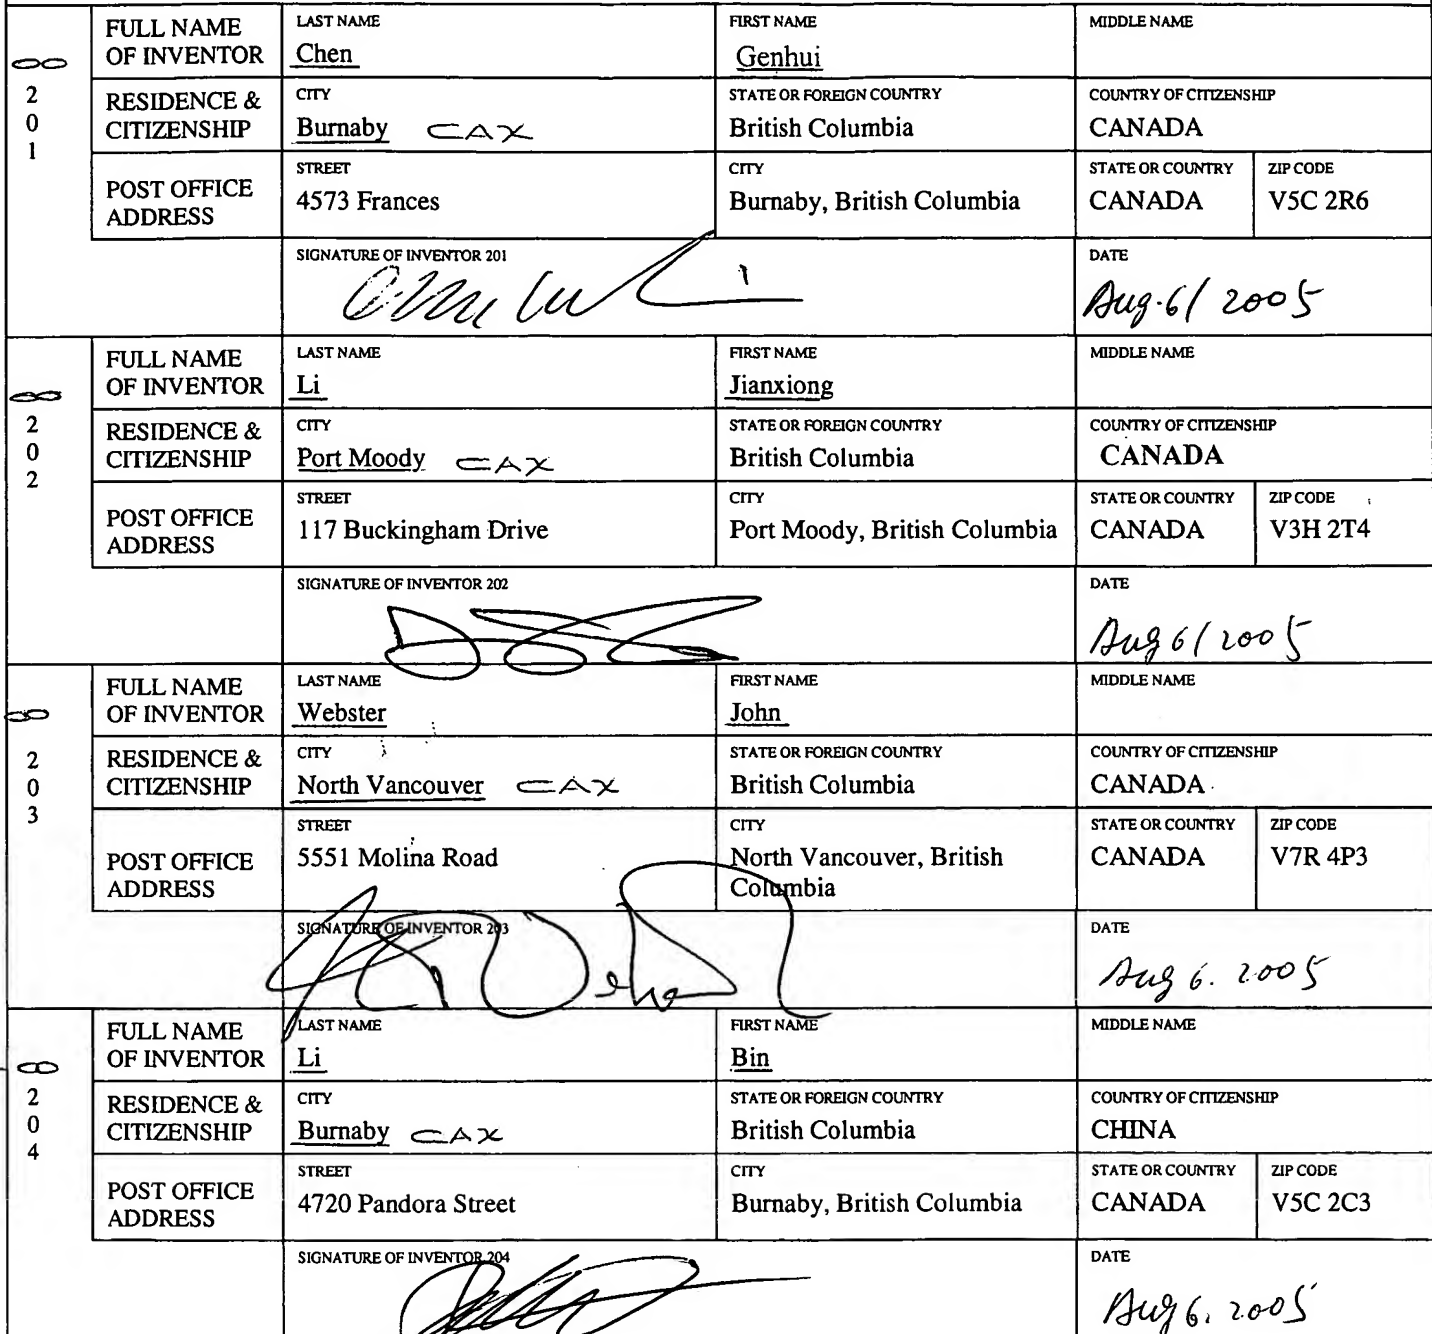 FULL NAME OF INVENTOR
LAST NAME
Chen
FIRST NAME
Genhui
MIDDLE NAME
201
RESIDENCE & CITIZENSHIP
CITY
Burnaby CAX
STATE OR FOREIGN COUNTRY
British Columbia
COUNTRY OF CITIZENSHIP
CANADA
POST OFFICE ADDRESS
STREET
4573 Frances
CITY
Burnaby, British Columbia
STATE OR COUNTRY
CANADA
ZIP CODE
V5C 2R6
SIGNATURE OF INVENTOR 201
DATE
Aug. 6/ 2005
FULL NAME OF INVENTOR
LAST NAME
Li
FIRST NAME
Jianxiong
MIDDLE NAME
202
RESIDENCE & CITIZENSHIP
CITY
Port Moody CAX
STATE OR FOREIGN COUNTRY
British Columbia
COUNTRY OF CITIZENSHIP
CANADA
POST OFFICE ADDRESS
STREET
117 Buckingham Drive
CITY
Port Moody, British Columbia
STATE OR COUNTRY
CANADA
ZIP CODE
V3H 2T4
SIGNATURE OF INVENTOR 202
DATE
Aug 6/ 2005
FULL NAME OF INVENTOR
LAST NAME
Webster
FIRST NAME
John
MIDDLE NAME
203
RESIDENCE & CITIZENSHIP
CITY
North Vancouver CAX
STATE OR FOREIGN COUNTRY
British Columbia
COUNTRY OF CITIZENSHIP
CANADA
POST OFFICE ADDRESS
STREET
5551 Molina Road
CITY
North Vancouver, British
Columbia
STATE OR COUNTRY
CANADA
ZIP CODE
V7R 4P3
SIGNATURE OF INVENTOR 203
DATE
Aug 6. 2005
FULL NAME OF INVENTOR
LAST NAME
Li
FIRST NAME
Bin
MIDDLE NAME
204
RESIDENCE & CITIZENSHIP
CITY
Burnaby CAX
STATE OR FOREIGN COUNTRY
British Columbia
COUNTRY OF CITIZENSHIP
CHINA
POST OFFICE ADDRESS
STREET
4720 Pandora Street
CITY
Burnaby, British Columbia
STATE OR COUNTRY
CANADA
ZIP CODE
V5C 2C3
SIGNATURE OF INVENTOR 204
DATE
Aug 6. 2005